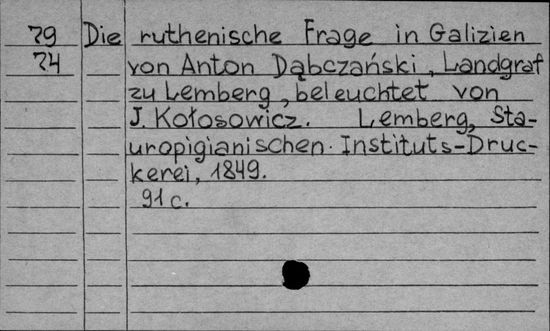 79 Die ruthenische Frage in Galizien
74 von Anton Dąbczański, Landgraf
zu Lemberg, beleuchtet von
J. Kołosowicz. Lemberg, Sta-
uropigianischen Instituts-Druc-
kerei, 1849.
91 c.